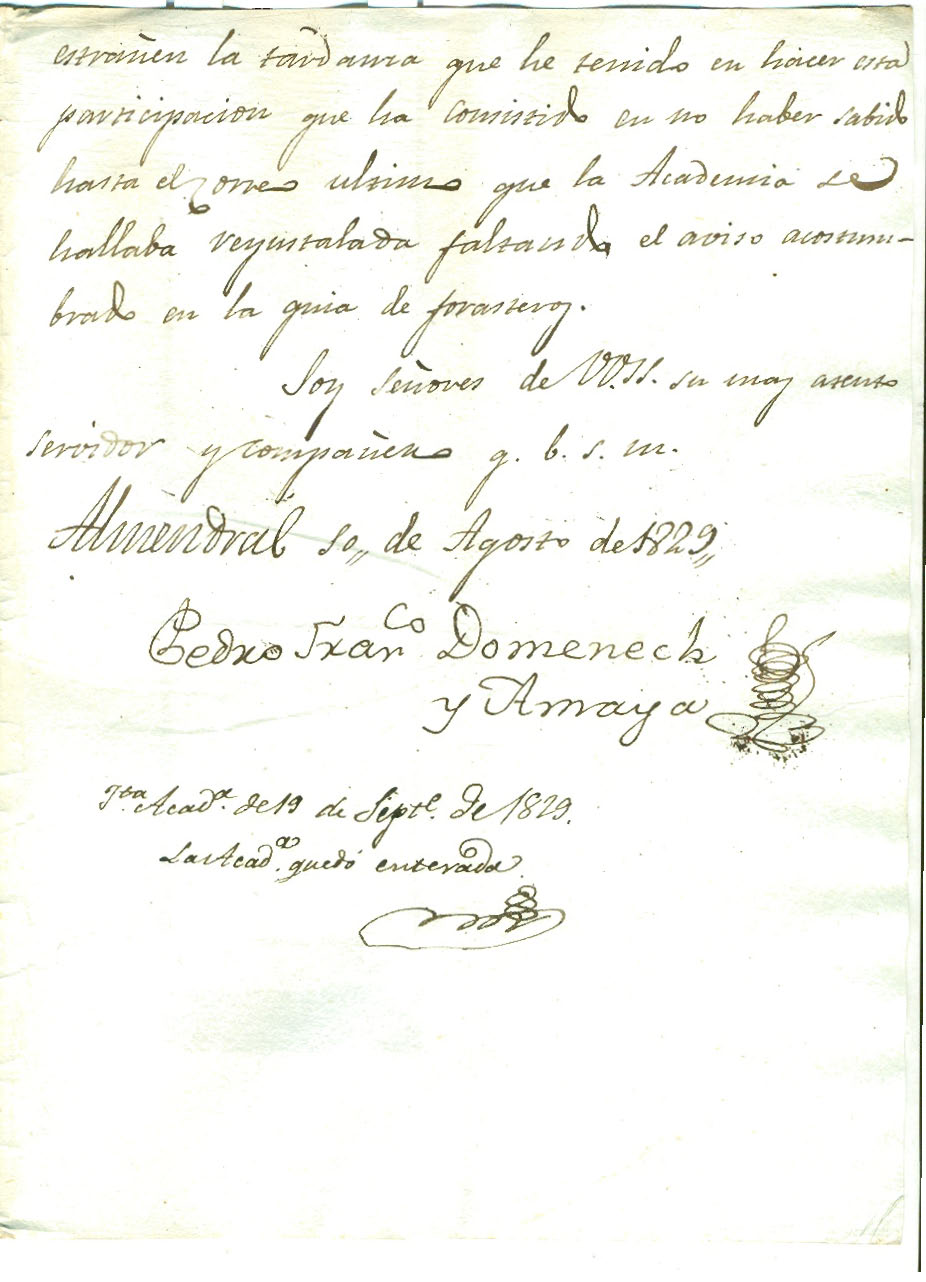 estrañen la tardanza que he tenido en hacer esta
participacion que ha consistido en no haber sabido
hasta el correo ultimo que la Academia se
hallaba reynstalada faltando el aviso acostum-
brado en la guia de forasteros.
Soy Señores de VV.SS. su muy atento
servidor y compañero q. b. s. m.
Almendral de Agosto de 1829,,
Pedro Franco Domenech
y Amaya
Jta Acada. de 19 de Septe. de 1829.
La Acada. quedó enterada.